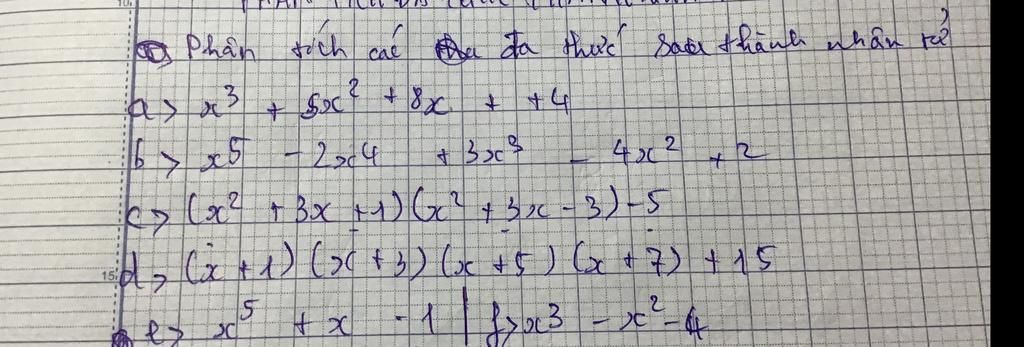 Phân tích các đa thức sau thành nhân tử
a> x³ + 5x² + 8x + +4
b> x5 - 2x4 + 3x³ - 4x² + 2
c> (x² + 3x + 1)(x² + 3x - 3) - 5
d> (x + 1) (x + 3) (x + 5) (x + 7) + 15
15
e> x⁵ + x - 1 | f> x3 - x² - 4